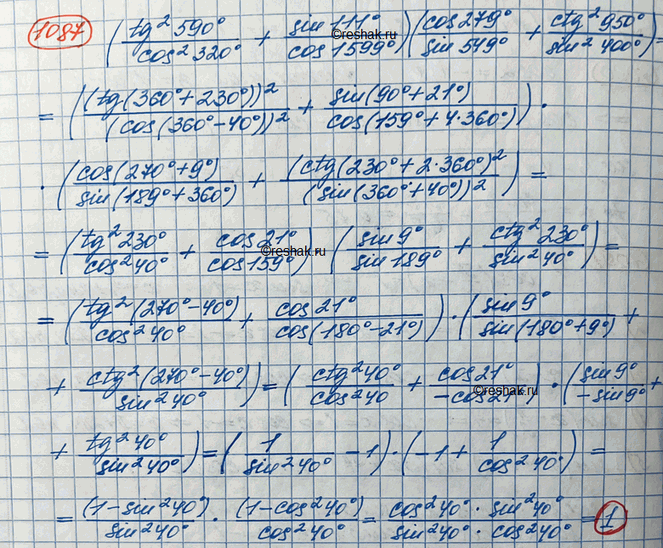 1087 (tg² 590° / cos² 320° + sin 111° / cos 1599°) (cos 279° / sin 549° + ctg² 950° / sin² 400°) =
= ((tg(360° + 230°))² / (cos(360° - 40°))² + sin(90° + 21°) / cos(159° + 4·360°)) ·
· (cos(270° + 9°) / sin(189° + 360°) + (ctg(230° + 2·360°)² / (sin(360° + 40°))²) =
= (tg² 230° / cos² 40° + cos 21° / cos 159°) (sin 9° / sin 189° + ctg² 230° / sin² 40°) =
= (tg² (270° - 40°) / cos² 40° + cos 21° / cos(180° - 21°)) · (sin 9° / sin(180° + 9°) +
+ ctg² (270° - 40°) / sin² 40°) = (ctg² 40° / cos² 40 + cos 21° / -cos 21°) · (sin 9° / -sin 9° +
+ tg² 40° / sin² 40°) = (1 / sin² 40° - 1) · (-1 + 1 / cos² 40°) =
= (1 - sin² 40°) / sin² 40° · (1 - cos² 40°) / cos² 40° = cos² 40° · sin² 40° / sin² 40° · cos² 40° = 1
©reshak.ru
©reshak.ru
©reshak.ru